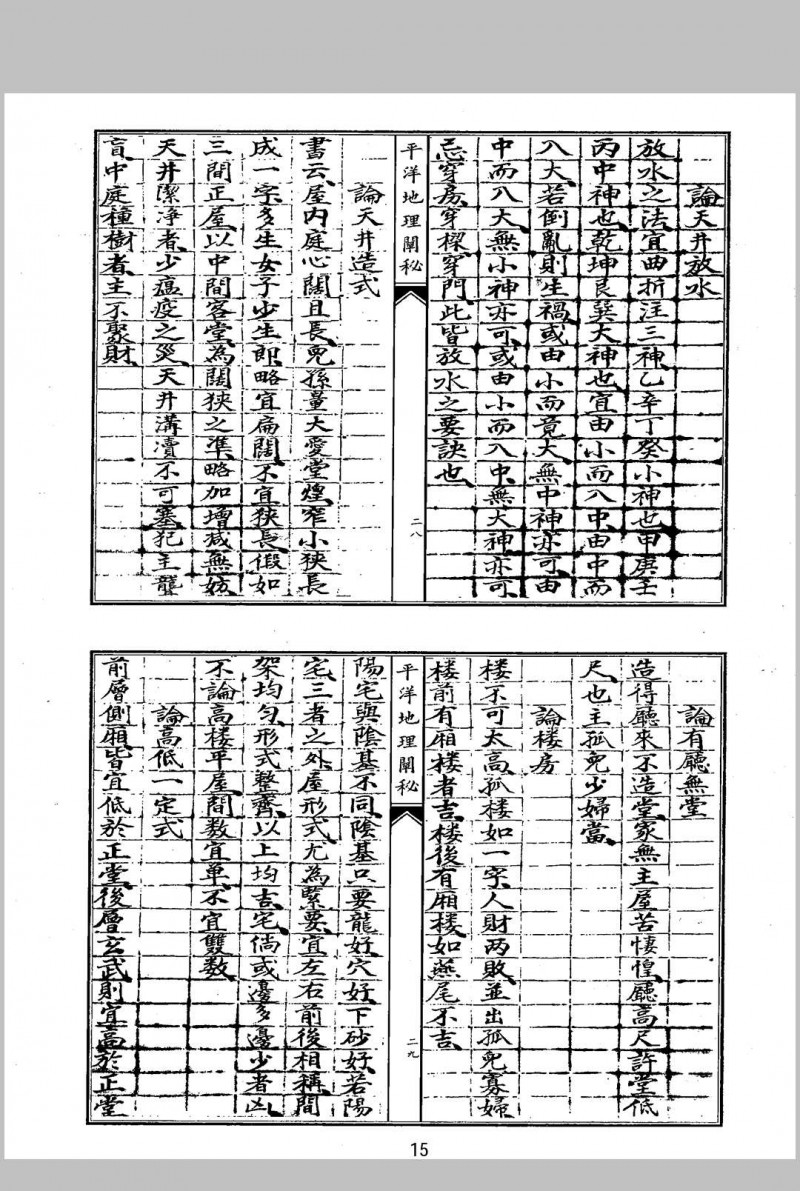 論天井放水
放水之法宜曲折注三神乙辛丁癸小神也甲庚壬
丙中神也乾坤艮巽大神也宜由小而八中由中而
八大若倒亂則生禍或由小而竟大無中神亦可由
中而八大無小神亦可或由小而八中無大神亦可
忌穿房穿樑穿門此皆放水之要訣也
平洋地理闡秘
二八
論天井造式
書云屋内庭心闊且長兒孫量大愛堂煌窄小狹長
成一字多生女子少生郎略宜扁闊不宜狹長假如
三間正屋以中間客堂為闊狹之準略加增減無妨
天井潔净者少瘟疫之災天井溝瀆不可塞犯主聾
盲中庭種樹者主不聚財
論有廳無堂
造得廳來不造堂家無主屋苦悽惶廳高尺許堂低
尺也主孤兒少婦當
論楼房
楼不可太高孤楼如一字人財两敗並出孤兒寡婦
楼前有廂楼者吉楼後有廂楼如燕尾不吉
平洋地理闡秘
二九
陽宅與陰基不同陰基只要龍好穴好下砂好若陽
宅三者之外屋形式尤為緊要宜左右前後相稱間
架均匀形式整齊以上均吉宅倘或邊多邊少者凶
不論高楼平屋間数宜单不宜雙数
論高低一定式
前層側廂皆宜低於正堂後層玄武則宜高於正堂
15